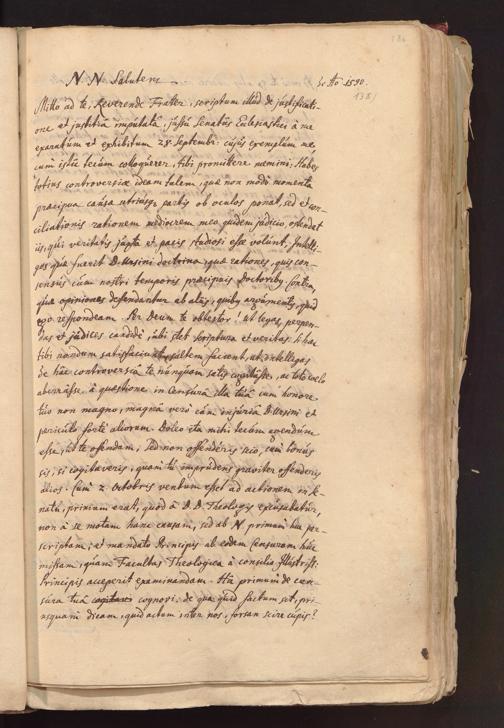 N N Salutem
8 8bo 1590.
138
Mitto ad te, Reverende Frater, scriptum illud de justificati-
one et justitia imputata, jussu Senatus Ecclesiastici à me
exaratum et exhibitum 28 Septembr: cujus exemplum me-
cum istic tecum colloquerer, tibi promittere memini. Habes
totius controversiæ ideam talem, quæ non modò momenta
præcipua causæ utriusq; partis ob oculos ponat, sed et con-
ciliationis rationem mediocrem meo quidem judicio, ostendat
iis, qui veritatis juxta et pacis studiosi esse volunt. Intelli-
ges quæ fuerit D. Ursini doctrina, quæ rationes, quis con-
sensus cum nostri temporis præcipuis Doctorib9; Contra,
quæ opiniones defendantur ab aliis, quib9 argumentis, quid
ego respondeam. Per Deum te obtestor! ut legas, perpen-
das et judices candidè, ubi stet Scriptura et veritas. Si hæc
tibi nondum satisfaciunt, saltem facient, ut intellegas
de hac controversia te nunquam satis cogitasse, ac toto cœlo
aberrasse à quæstione in Censura illa tua cum honore
tuo non magno, magna verò cum injuria D. Ursini et
periculo fortè aliorum. Doleo ita mihi tecum agendum
esse, ut te offendam, sed non offenderis scio, cum bonus
sis, si cogitaveris, quam tu imprudens graviter offenderis
alios. Cum 2 Octobris ventum esset ad actionem in se-
natu, primum erat, quod à D. D. Theologis excusabatur,
non à se motam hanc causam, sed ab N primum huc per-
scriptam; et mandato Principis ab eodem Censuram huc
missam, quam Facultas Theologica à consilio Illustriss:
Principis acceperit examinandam. Hîc primum de cen-
sura tua cognovi: de qua quid factum sit, pri-
usquam dicam, quid actum inter nos, forsan scire cupis?